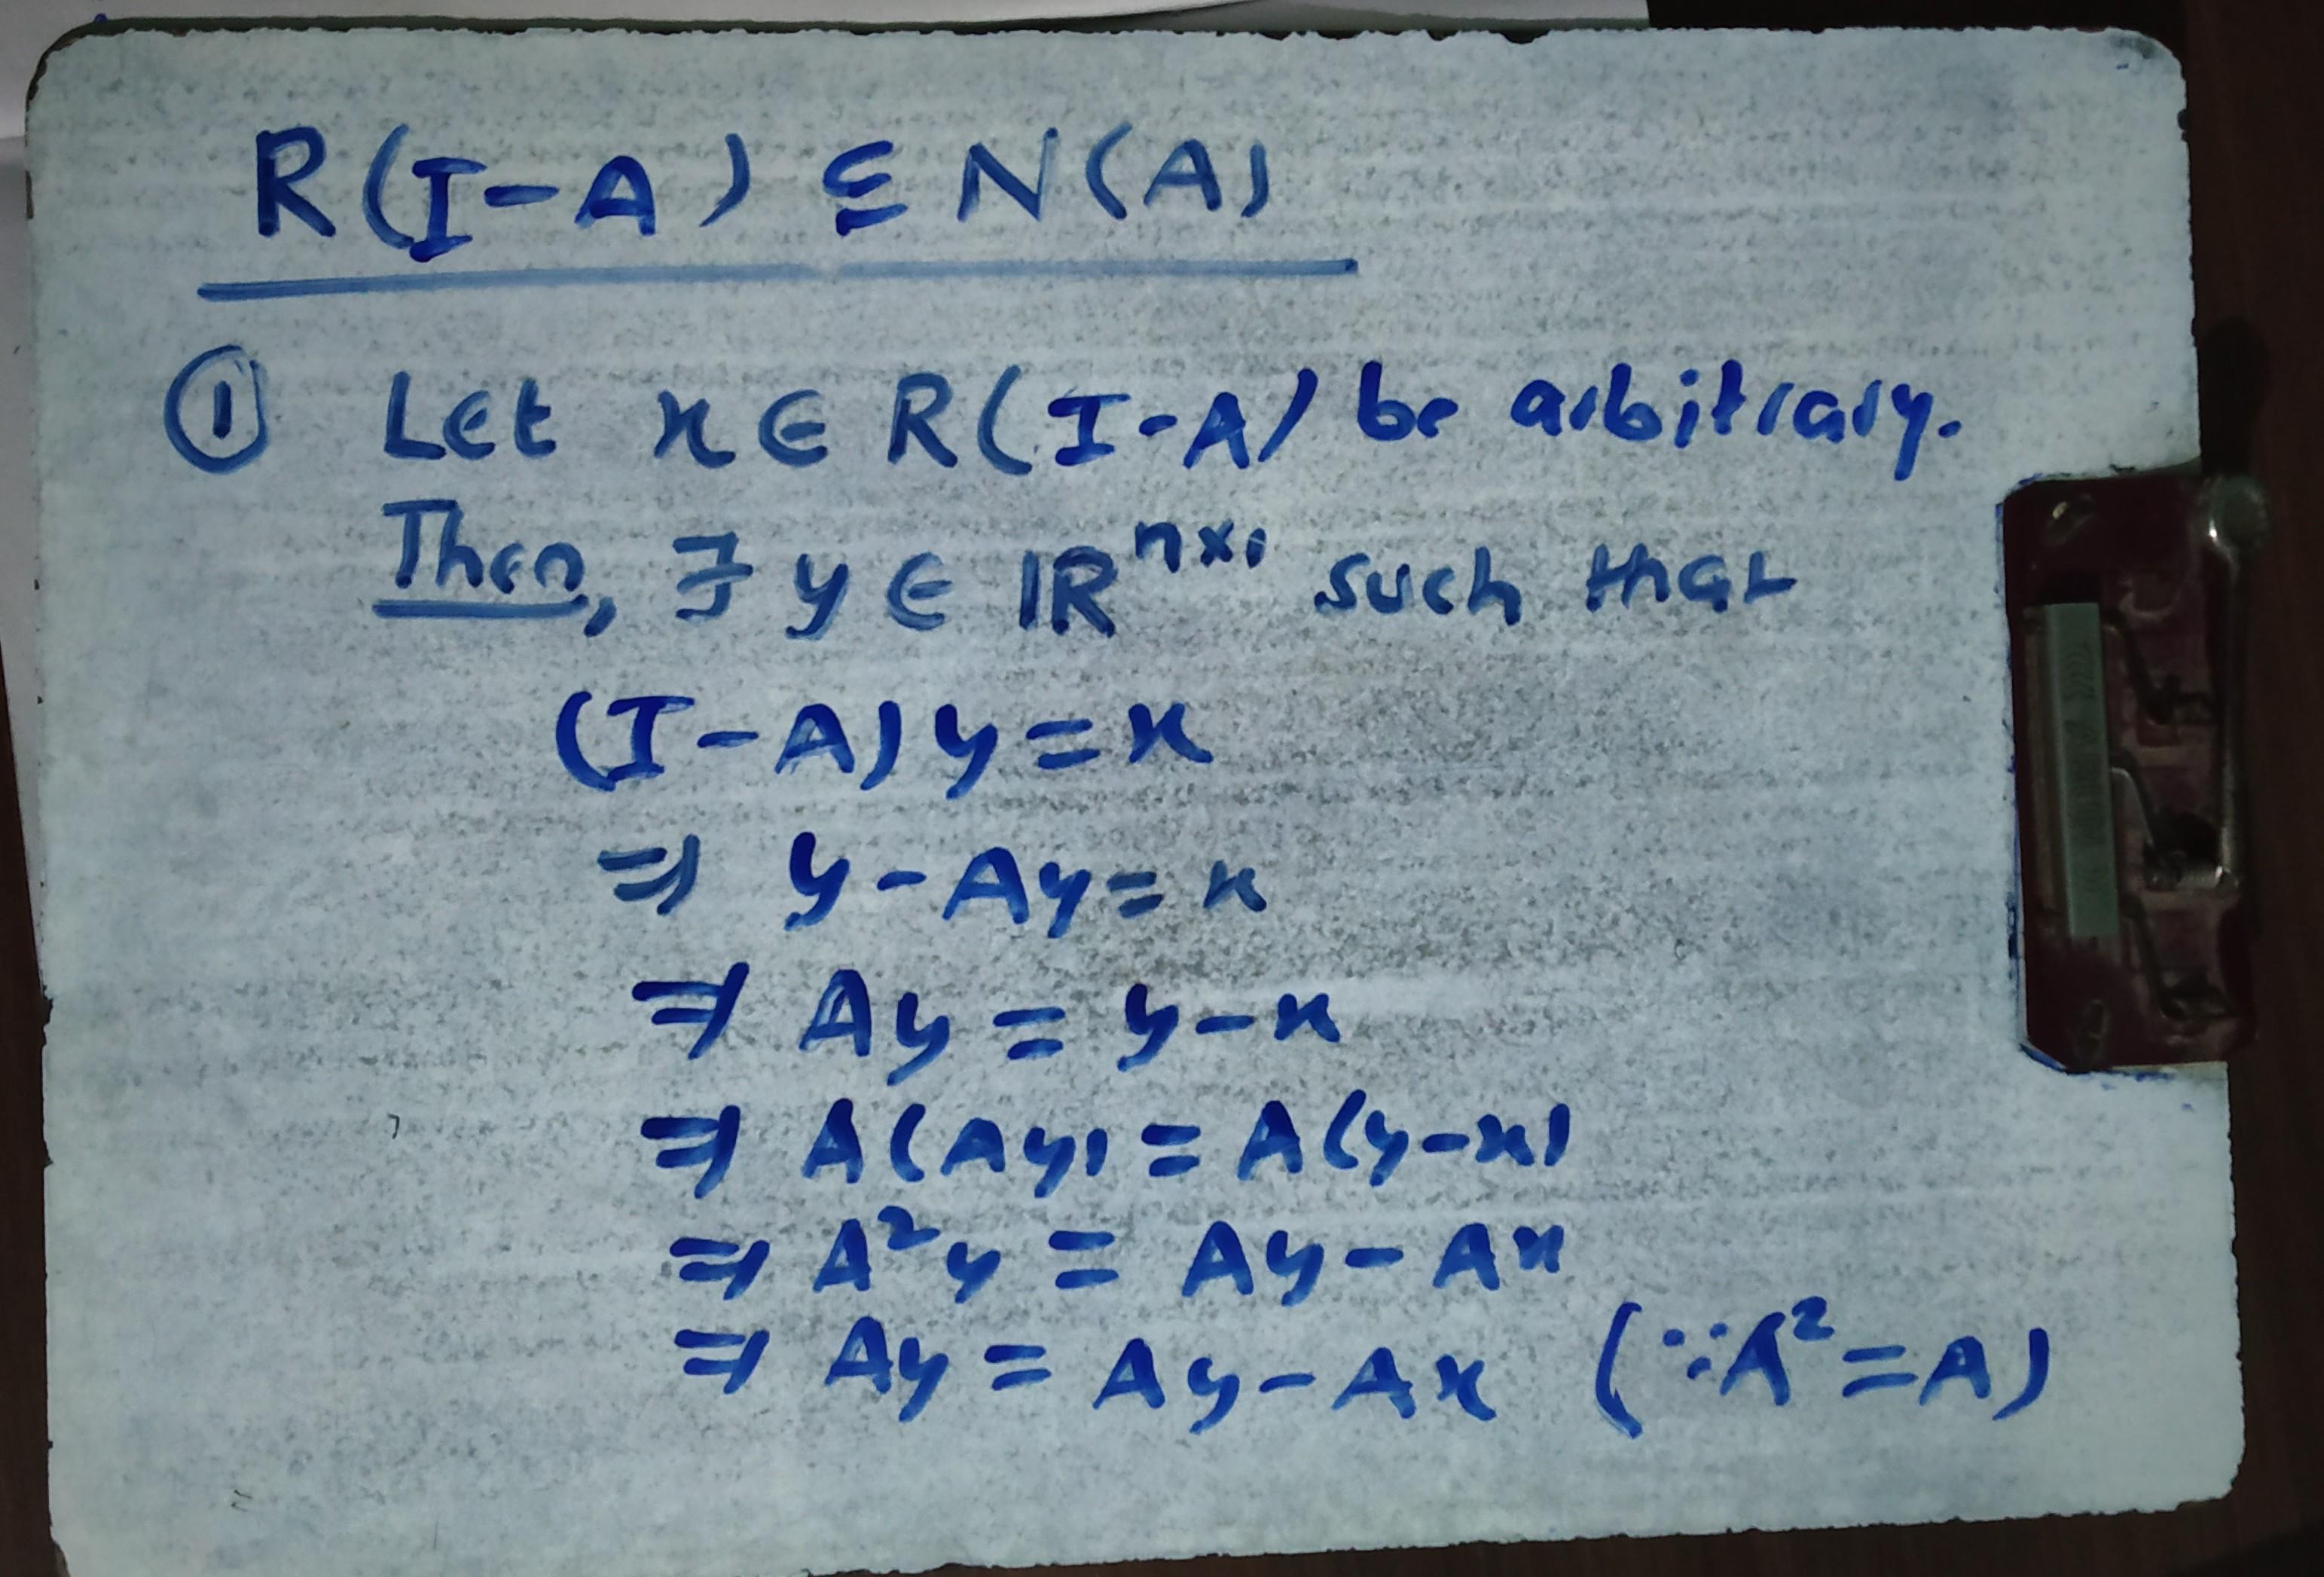 R(I-A) ⊆ N(A)
① Let x ∈ R(I-A) be arbitrary.
Then, ∃ y ∈ ℝⁿˣ¹ such that
(I-A)y = x
⇒ y-Ay = x
⇒ Ay = y-x
⇒ A(Ay) = A(y-x)
⇒ A²y = Ay-Ax
⇒ Ay = Ay-Ax (∵A²=A)